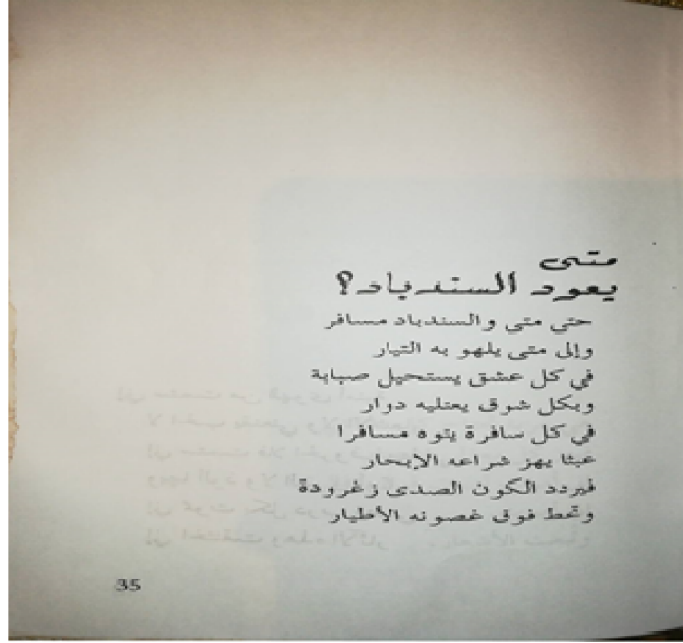 متى
يعود السندباد؟
حتي متي والسندباد مسافر
وإلى متى يلهو به التيار
في كل عشق يستحيل صبابة
وبكل شوق يعتليه دوار
في كل سافرة يتوه مسافرا
عبثا يهز شراعه الإبحار
فيردد الكون الصدى زغرودة
وتحط فوق غصونه الأطيار
35